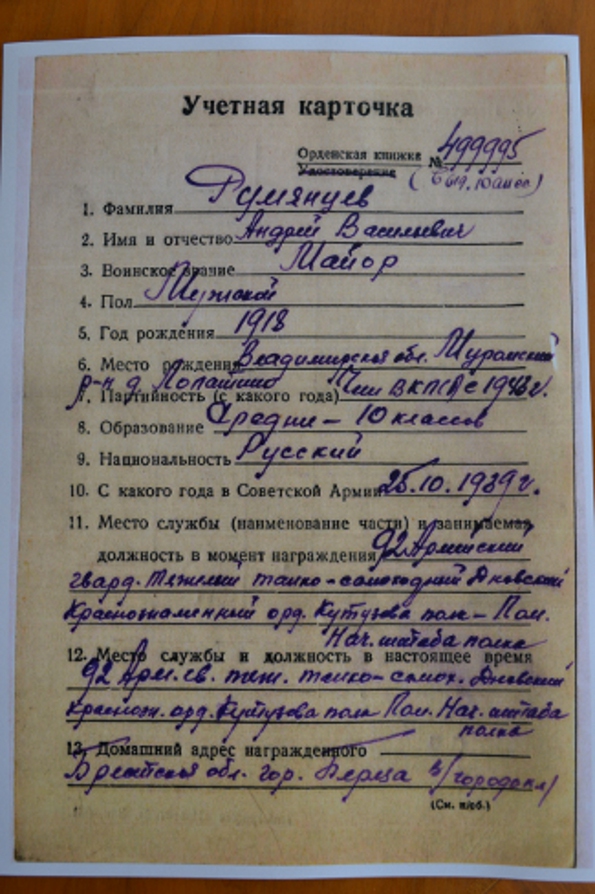 Учетная карточка
Орденская книжка № 499995
Удостоверение
1. Фамилия Румянцев
2. Имя и отчество Андрей Васильевич
3. Воинское звание Майор
4. Пол Мужской
5. Год рождения 1918
6. Место рождения Владимирская обл. Муромский
р-н д. Лопатино
7. Партийность (с какого года) Член ВКП(б) с 1943 г.
8. Образование Средне - 10 классов
9. Национальность Русский
10. С какого года в Советской Армии 25.10.1939 г.
11. Место службы (наименование части) и занимаемая
должность в момент награждения 92 Армейский
гвард. тяжелый танко-самоходный Дновский
Краснознаменный орд. Кутузова полк - Пом.
Нач. штаба полка
12. Место службы и должность в настоящее время
92 Арм. гв. тяж. танко-самох. Дновский
Краснозн. орд. Кутузова полк Пом. Нач. штаба
полка
13. Домашний адрес награжденного
Брестская обл. гор. Береза в/городок 1
(См. н/об.)